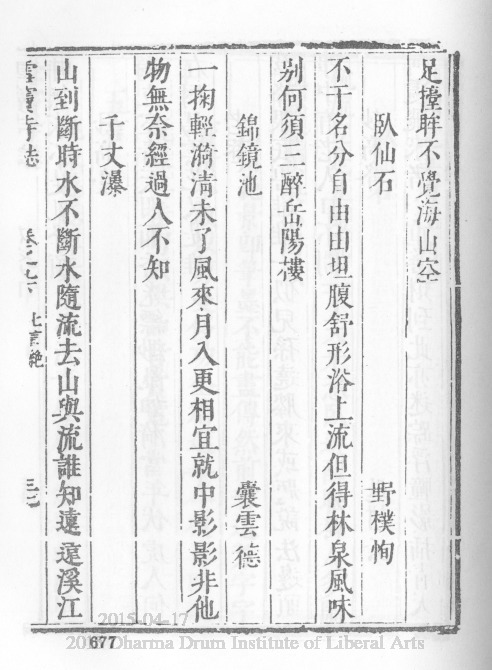 足擡眸不覺海山空
臥仙石　野樸恂
不干名分自由由坦腹舒形浴上流但得林泉風味
别何須三醉岳陽樓
錦鏡池　囊雲德
一掬輕漪清未了風來月入更相宜就中影影非他
物無奈經過人不知
千丈瀑
山到斷時水不斷水隨流去山與流誰知遠遠溪江
雪竇寺誌　卷之九下　七言絶　三七
2015-04-17
677
Dharma Drum Institute of Liberal Arts